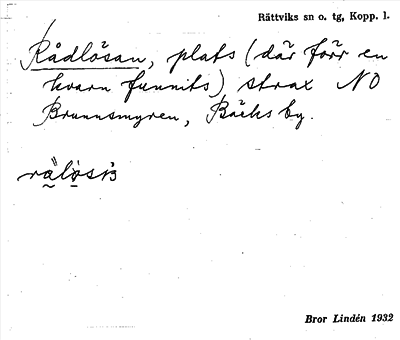 Rättviks sn o. tg, Kopp. l.
Rådlösan, plats (där förr en
kvarn funnits) strax NO
Brunnsmyren, Bäcks by.
Bror Lindén 1932